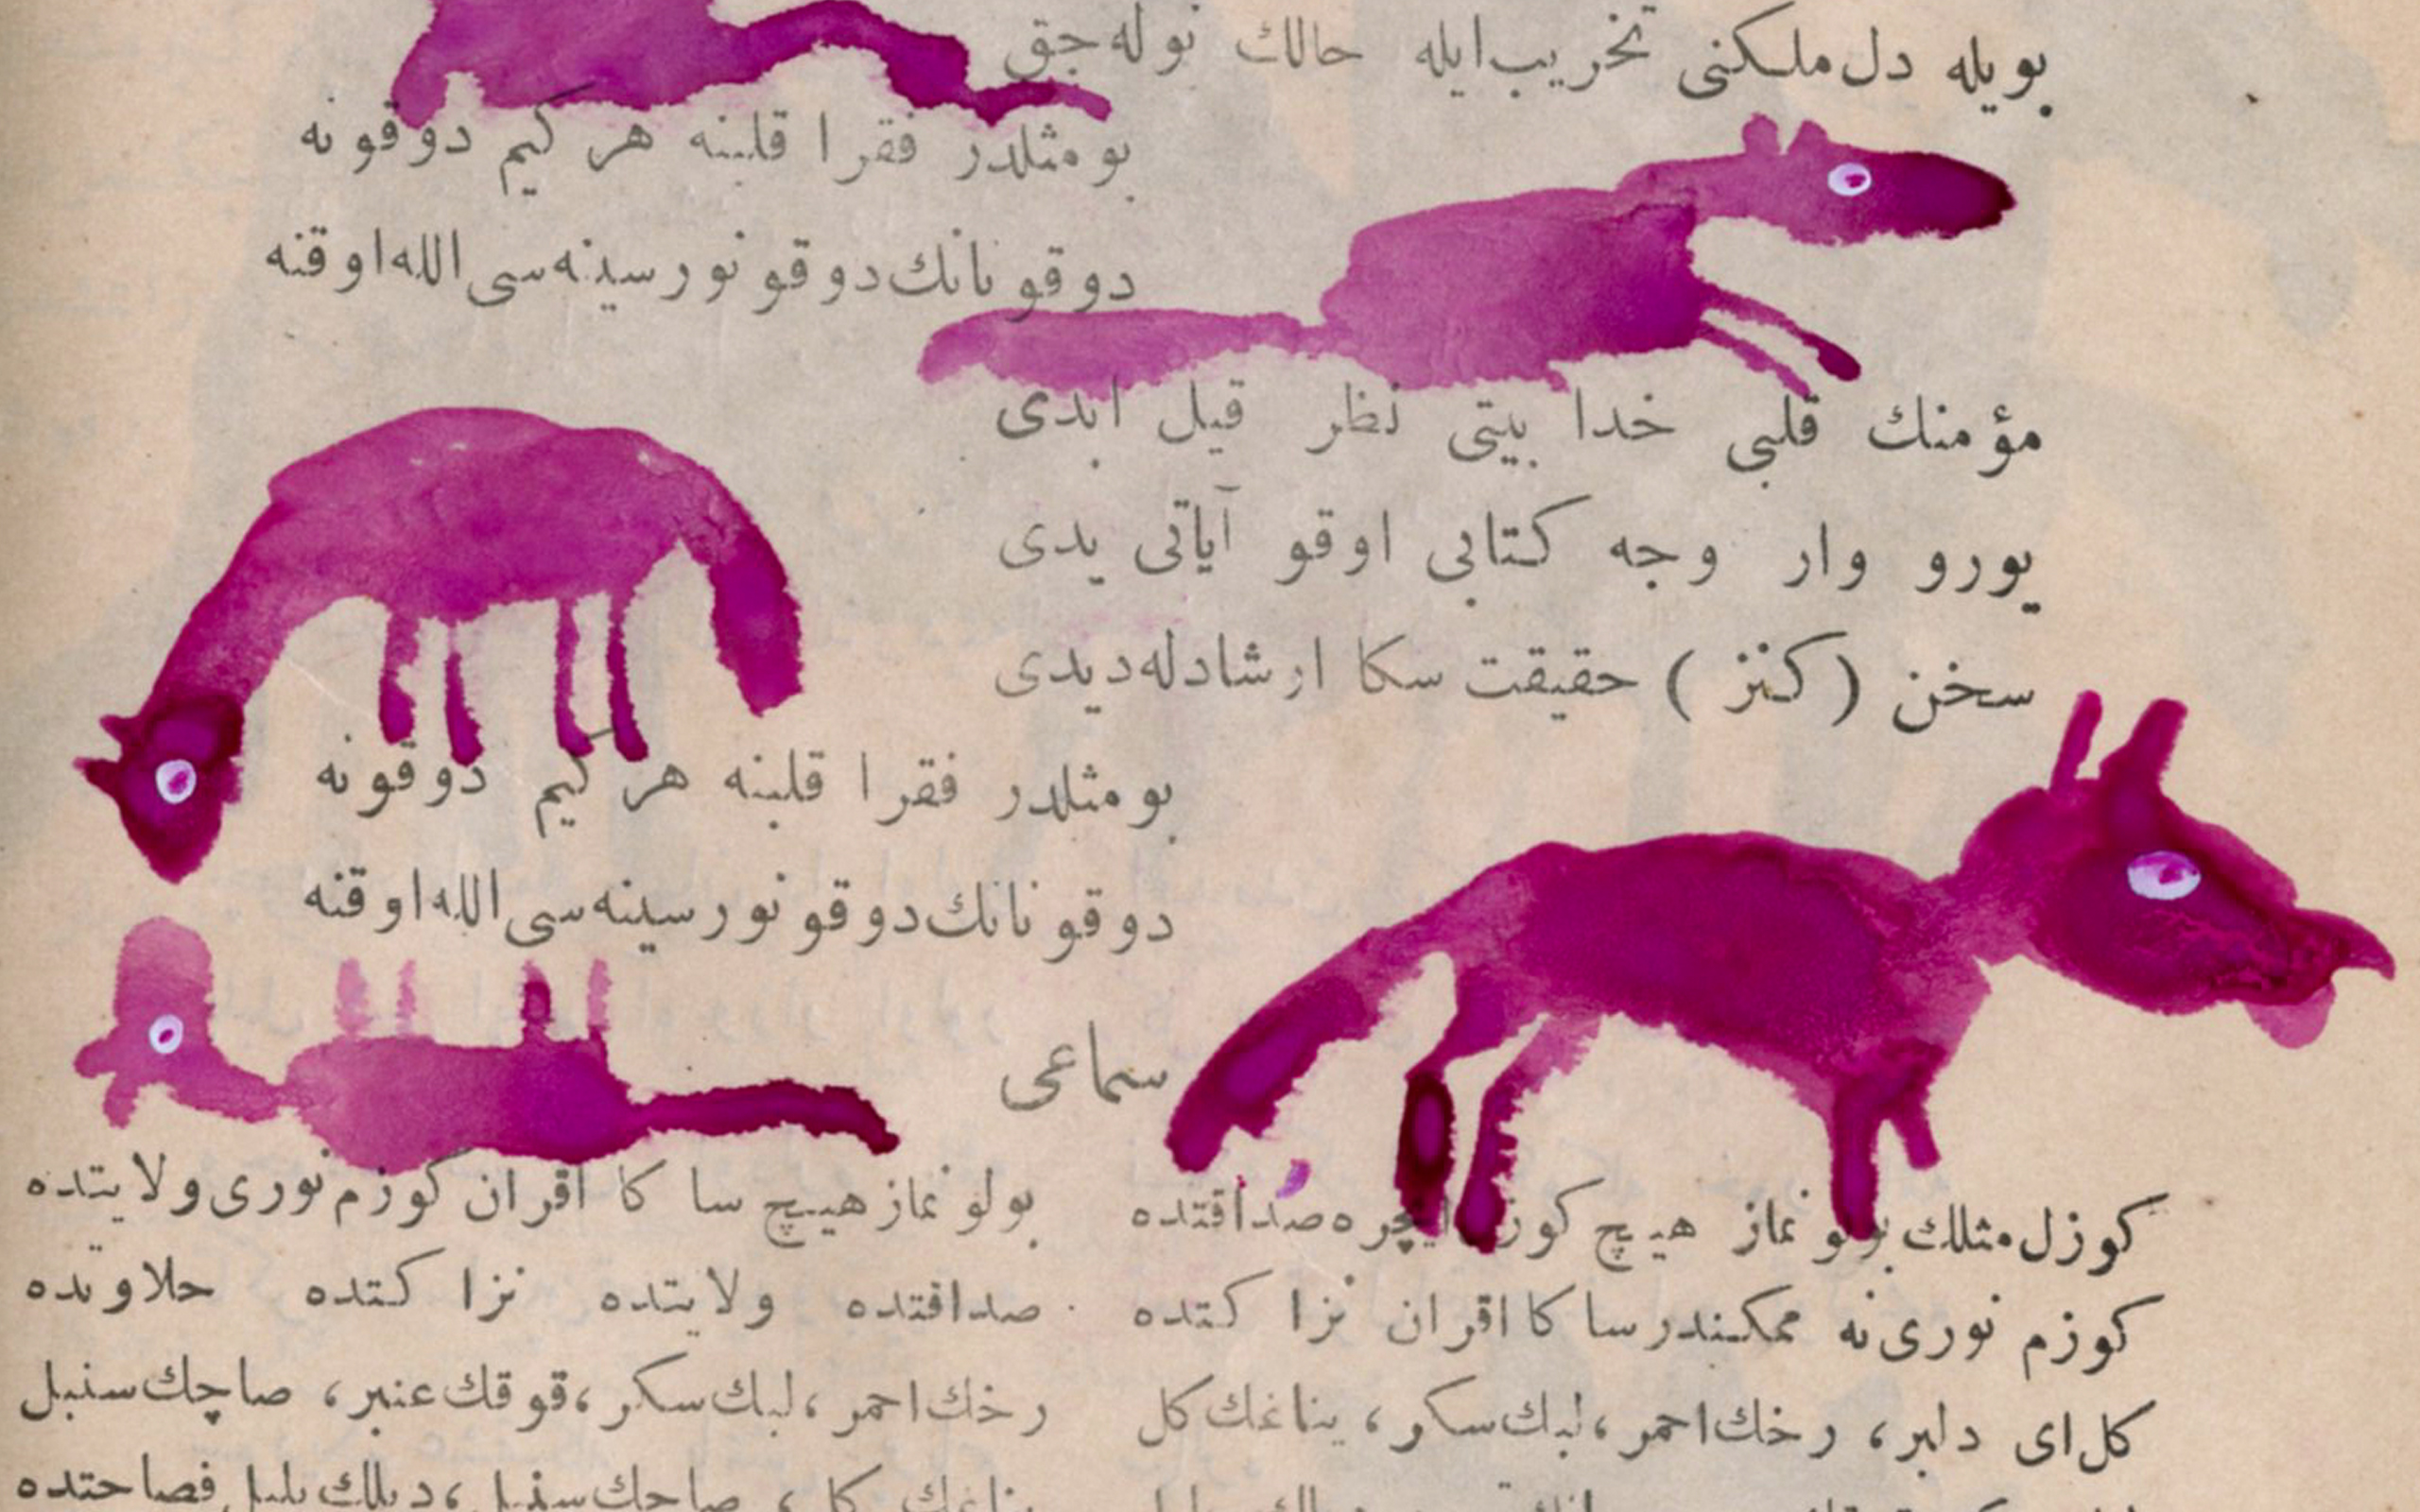 بویله دل ملکنی تخریب ایله حالك نوله جق
بو مثلدر فقرا قلبنه هر کیم دوقونه
دوقونانك دوقونور سینه سی الله اوقنه
مؤمنك قلبی خدا بیتی نظر قیل ابدی
یورو وار وجه کتابی اوقو آیاتی یدی
سخن (کنز) حقیقت سکا ارشادله دیدی
بو مثلدر فقرا قلبنه هر کیم دوقونه
دوقونانك دوقونور سینه سی الله اوقنه
سماعی
کوزل مثلك بولونماز هیچ کوزم ایچره صداقتده
بولونماز هیچ سا کا اقران کوزم نوری ولایتده
کوزم نوری نه ممکندر سا کا اقران نزاکتده
صداقتده ولایتده نزاکتده حلاوتده
کل ای دلبر، رخك احمر، لبك سکر، یناغك کل
رخك احمر، لبك سکر، قوقك عنبر، صاچك سنبل
یناغك کل، صاچك سنبل، دیلك بلبل فصاحتده